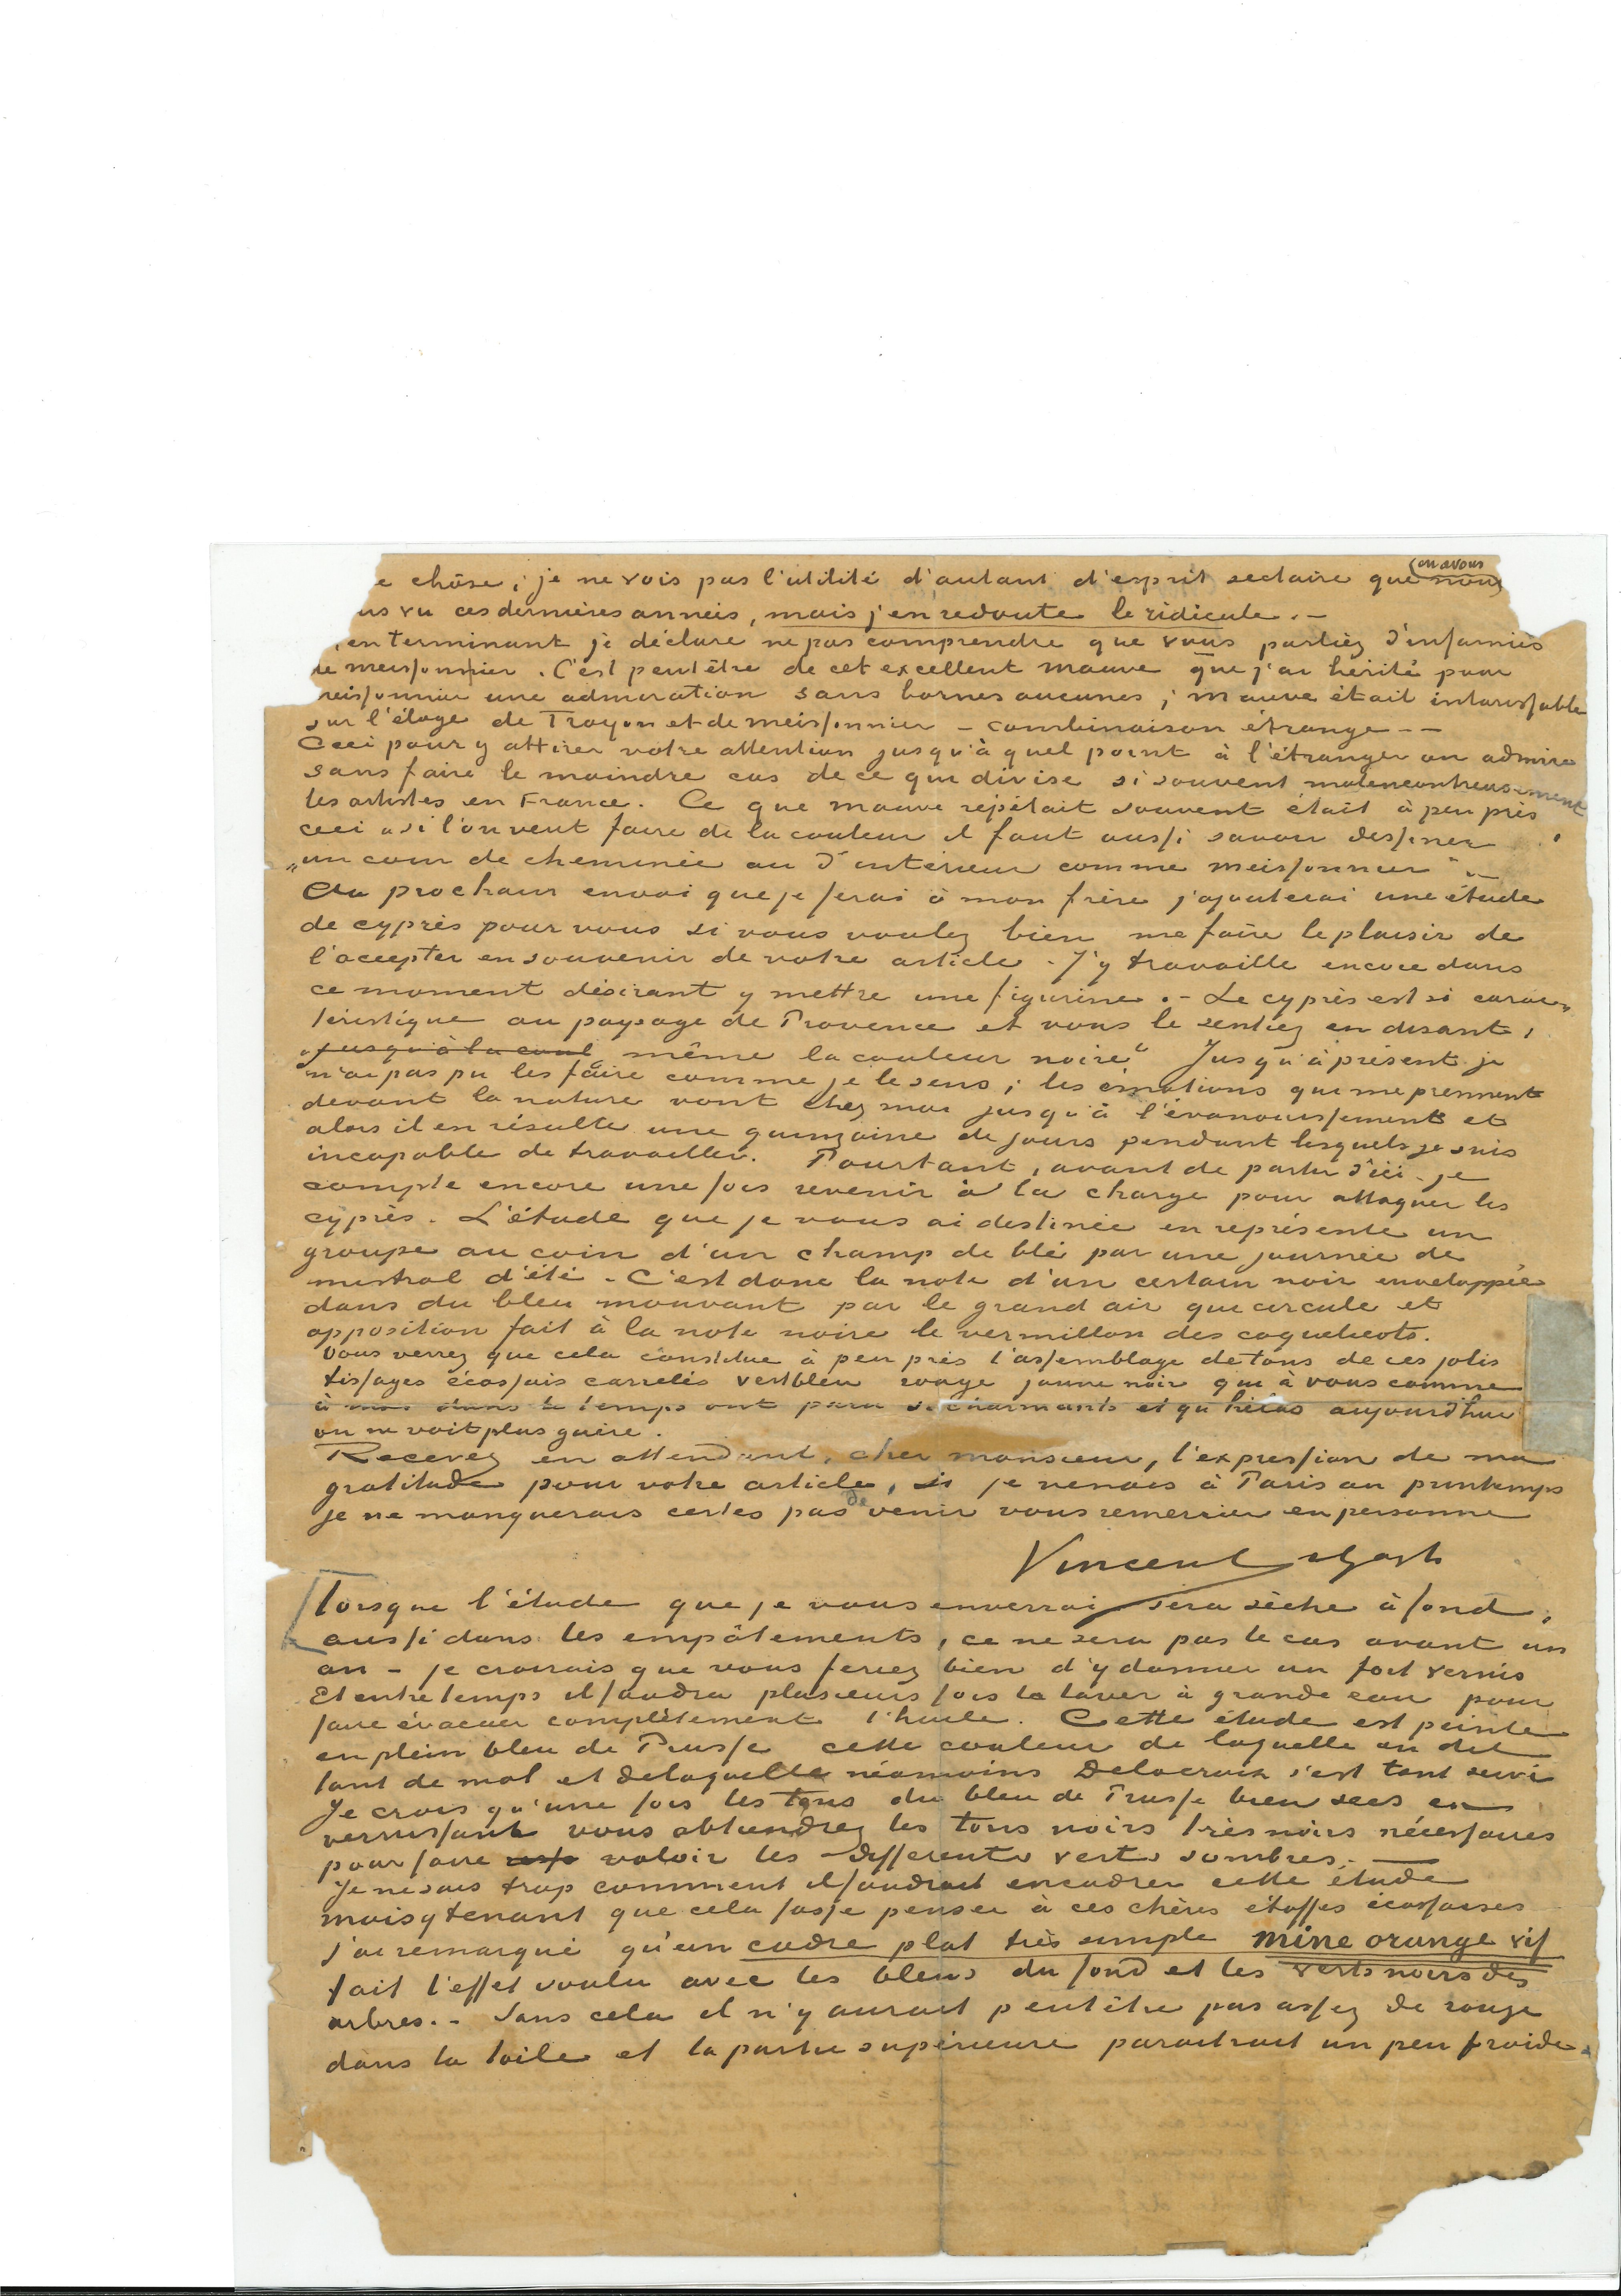 e chôse; je ne vois pas l'utilité d'autant d'esprit sectaire que nous
on a vous
us vu ces dernières années, mais j'en redoute le ridicule. –
en terminant je déclare ne pas comprendre que vous parliez d'infamies
de Meissonnier. C'est peut être de cet excellent Mauve que j'ai hérité pour
meissonnier une admiration sans bornes aucunes; Mauve était intarissable
sur l'éloge de Troyon et de Meissonnier – combinaison étrange – –
Ceci pour y attirer votre attention jusqu'à quel point à l'étranger on admire
sans faire le moindre cas de ce qui divise si souvent malencontreusement
les artistes en France. Ce que Mauve répétait souvent était à peu près
ceci « si l'on veut faire de la couleur il faut aussi savoir dessiner
„un coin de cheminée ou d'intérieur comme Meissonnier“
Au prochain envoi que je ferai à mon frère j'ajouterai une étude
de cyprès pour vous si vous voulez bien me faire le plaisir de
l'accepter en souvenir de votre article. J'y travaille encore dans
ce moment désirant y mettre une figurine. – Le cyprès est si carac„
téristique au paysage de Provence et vous le sentiez en disant:
„jusqu'à la coul même la couleur noire“ Jusqu'à présent je
n'ai pas pu les faire comme je le sens; les émotions qui me prennent
devant la nature vont chez moi jusqu'à l'évanouissement et
alors il en résulte une quinzaine de jours pendant lesquels je suis
incapable de travailler. Pourtant, avant de partir d'ici, je
compte encore une fois revenir à la charge pour attaquer les
cyprès. L'étude que je vous ai destinée en représente un
groupe au coin d'un champ de blé par une journée de
mistral d'été. C'est donc la note d'un certain noir enveloppée
dans du bleu mouvant par le grand air qui circule et
opposition fait à la note noire le vermillon des coquelicots.
Vous verrez que cela constitue à peu près l'assemblage de tons de ces jolis
tissages écossais carrelés vert bleu rouge jaune noir qui à vous comme
à moi dans le temps ont paru si charmants et qu'hélas aujourd'hui
on ne voit plus guère.
Recevez en attendant, cher monsieur, l'expression de ma
gratitude pour votre article, si je venais à Paris au printemps
je ne manquerais certes pas de venir vous remercier en personne
Vincent v Gogh
Lorsque l'étude que je vous enverrai sera sèche à fond,
aussi dans les empâtements, ce ne sera pas le cas avant un
an – je croirais que vous feriez bien d'y donner un fort vernis
Et entretemps il faudra plusieurs fois la laver à grande eau pour
faire évacuer complètement l'huile. Cette étude est peinte
en plein bleu de Prusse cette couleur de laquelle on dit
tant de mal et de laquelle néamoins Delacroix s'est tant servi
Je crois qu'une fois les tons du bleu de Prusse bien secs en
vernissant vous obtiendrez les tons noirs très noirs nécessaires
pour faire valoir les differents verts sombres. –
Je ne sais trop comment il faudrait encadrer cette étude
mais y tenant que cela fasse penser à ces chères étoffes écossaises
j'ai remarqué qu'un cadre plat très simple mine orange vif
fait l'effet voulu avec les bleus du fond et les verts noirs des
arbres. – Sans cela il n'y aurait peut être pas assez de rouge
dans la toile et la partie supérieure paraitrait un peu froide.